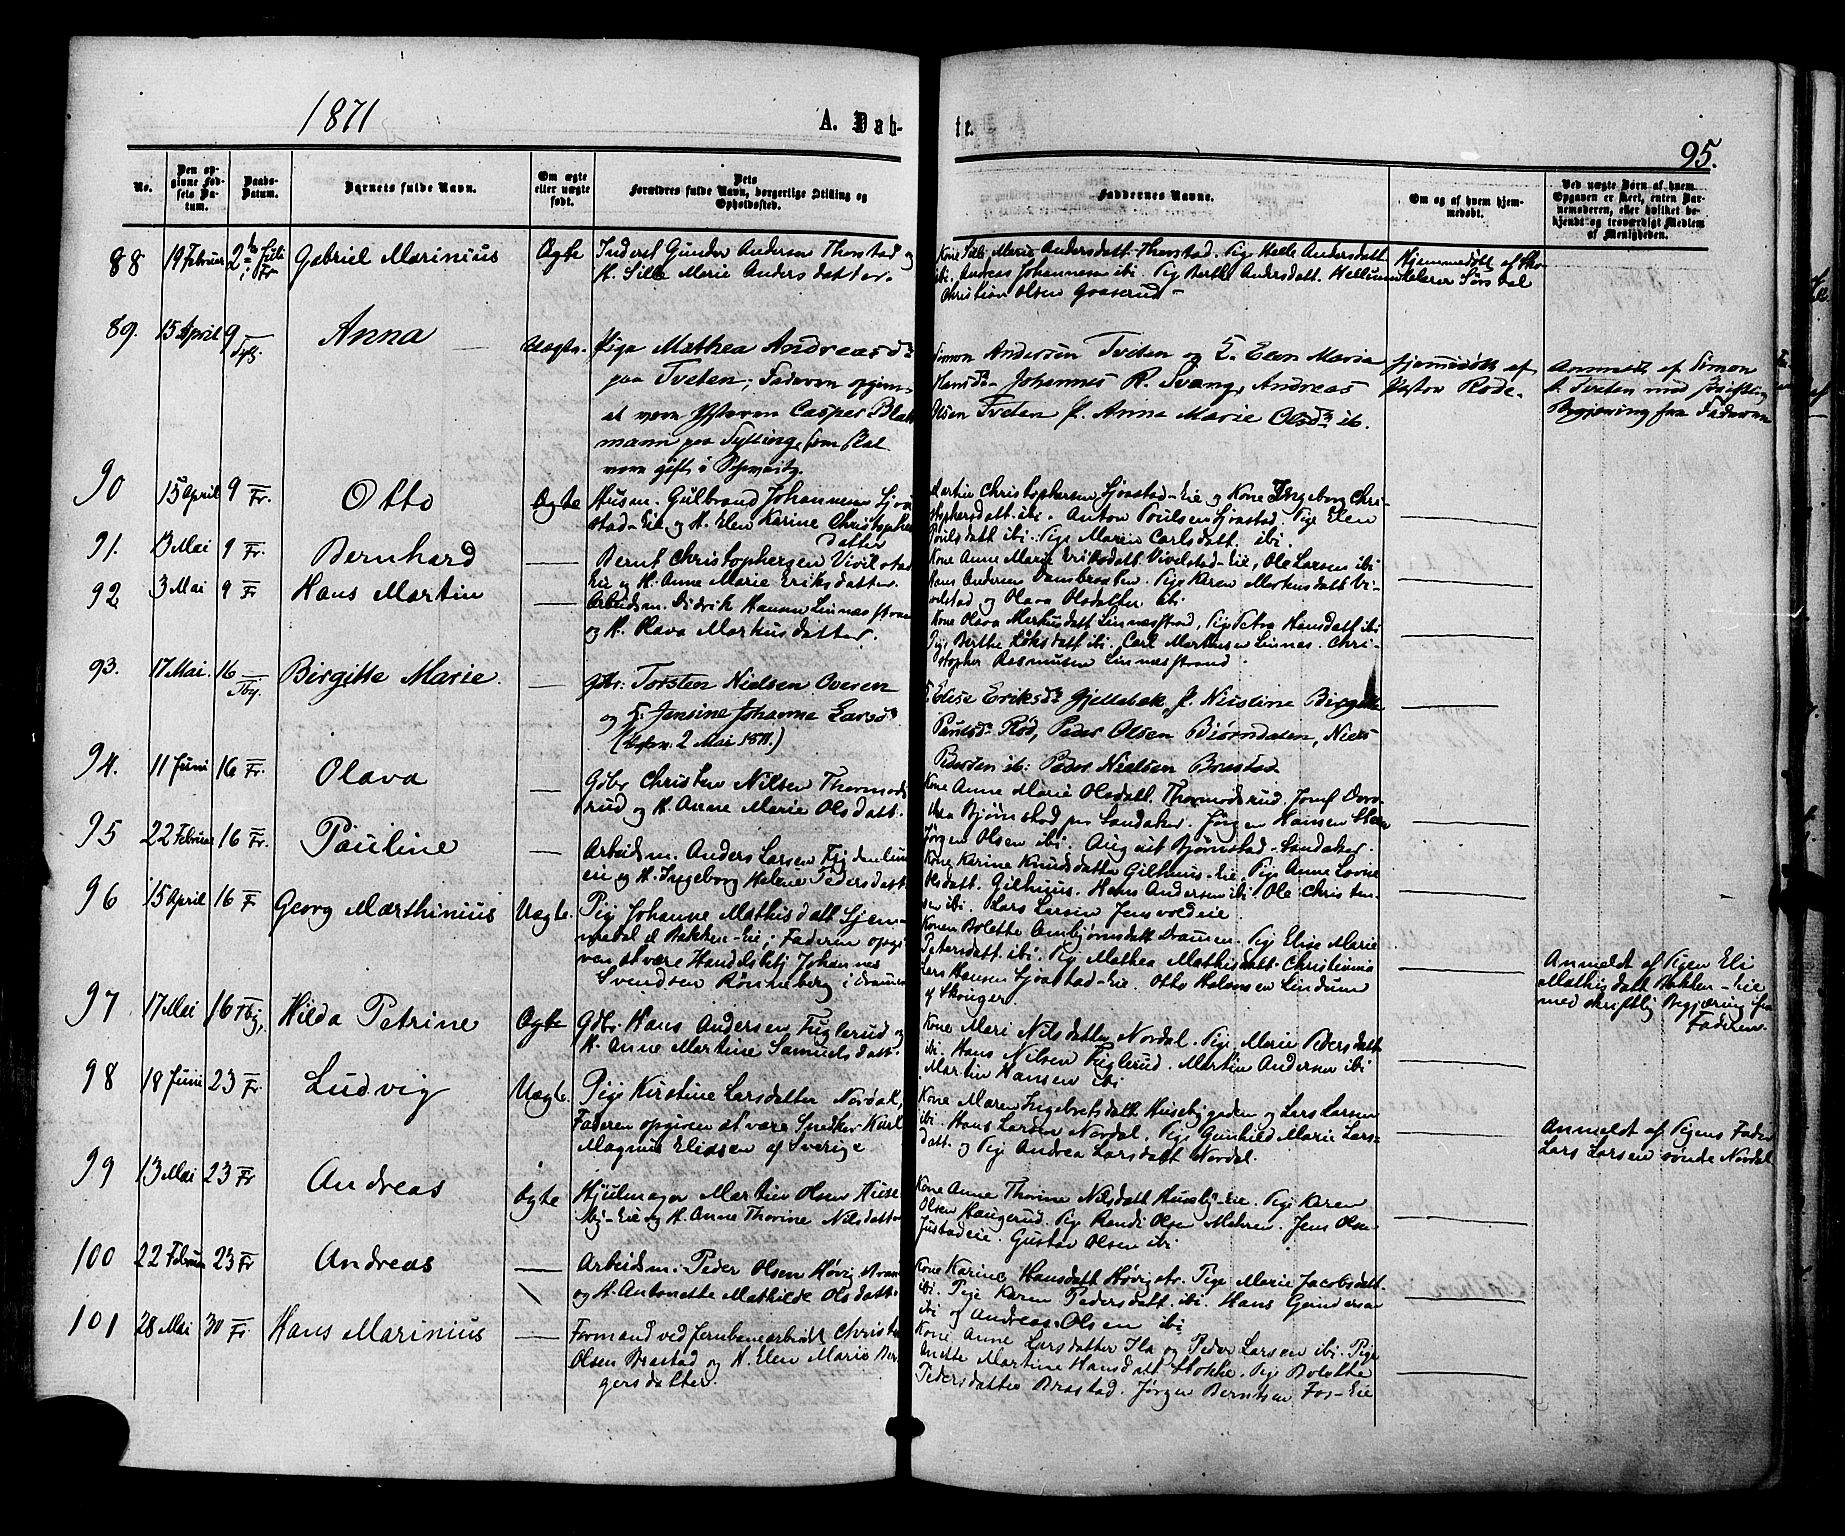 1871
A. Dåb-
te.
95.
No.
Den opgivne Fødsels Datum.
Daabs-Datum.
Barnets fulde Navn.
Om ægte eller uægte født.
Dets Forældres fulde Navn, borgerlige Stilling og Opholdssted.
Faddernes Navne.
Om og af hvem hjemmedøbt.
Ved uægte Børn af hvem Opgaven er skeet, enten Barnemoderen, eller hvilket bekjendt og troværdigt Medlem af Menigheden.
88 19 Februar Gabriel Marinius Ægte Inderst Gunder Andersen Thorstad og
K. Sille Marie Andersdatter.
Kone Sille Marie Andersdatt. Thorstad. Pige Helle Andersdatt
ibi. Andreas Johannesen ibi. Pige Berthe Andersdatt. Hellum
Christian Olsen Graserud
Hjemmedøbt af
89. 15 April 9 Anna Uægte. Piga Mathea Andreasd.
paa Tveten; Faderen opgiven
at være Casper
mann paa Sylling, som skal
være gift i Schweitz.
Simon Andersen Tveten og K. Elen Maria
Hansd. Johannes R. Svang, Andreas
Olsen Tveten P. Anna Marie Olsd. ib.
hjemmedøbt af
Pastor Rode.
Anmeldt af Simon
A. Tveten med skriftlig
Begjæring fra Faderen
90 15 April 9 Fr. Otto Ægte Husm. Gulbrand Johannesen Sjaa-
stad-Eie og K. Elen Karine Christopher
datter
Martin Christophersen Sjaastad-Eie og Kone Ingeborg Chri-
stophersdatt. ibi. Anton Poulsen Sjaastad. Pige Elen
Poulsdatt ibi. Pige Maria Carlsdatt. ibi.
91. 13 Mai 9 Fr. Bernhard Bernt Christophersen Vivilstad
Eie og K. Anne Marie Eriksdatter.
Kone Anne Marie Eriksdatt. Vivelstad-Eie, Ole Larsen ibi
Hans Andersen Dambraaten. Pige Karen Markusdatt Vi-
velstad og Olava Olsdatter ibi
92 3 Mai 9 Fr Hans Martin Arbeidsm. Didrik Hansen Linnesstrand
og K. Olava Markusdatter.
Kone Olava Markusdatt Linnesstrand, Pige Petra Hansdatt ibi
Pige Berthe datt ibi. Carl Martensen Linnes. Chri-
stopher Rasmusen Linnesstrand.
93. 17 Mai. 16 Tbg. Birgitte Marie. Gdbr. Torsten Nielsen Overen
og K. Jensine Johanna Larsd.
(Confirm. 2 Mai 1871.)
K. Elise Eriksd. Gjellebæk, P. Nicoline Birgitte
Paulsd. Rød, Peder Olsen Biørndalen, Niels
Pedersen ib: Peder Nielsen Brastad.
94. 11 Juni 16 Fr. Olava Gdbr Christen Nilsen Thormods
rud og K. Anne Marie Olsdatt.
Kone Anne Marie Olsdatt. Thormodsrud. Josef Doro-
thea Bjørnstad paa Sandaker. Jørgen Hansen
Jørgen Olsen ibi. August Bjørnstad-Sandaker.
95 22 Februar 16 Fr. Pauline Arbeidsm. Anders Larsen
en og K. Ingeborg Helene Pedersdatt
Kone Karine Knudsdatter Gilhuus-Eie. Pige Anne Lovise
Olsdatt. Gilhuus. Hans Andersen ibi. Ole Christen-
sen ibi. Lars Larsen Jensvoldeie.
96 15 April 16 F Georg Marthinius Uægte. Pige Johanne Mathisdatt Ljem-
medal el Bakken-Eie; Faderen opgi
ven at være Handelsbetj. Johannes
Svendsen Rønneberg i Drammen
Konen Bolette Ambjørnsdatt Dramen. Pige Elise Marie
Petersdatt ibi. Pig Mathea Mathisdatt Christiania
Lars Hansen Sjaastad-Eie. Otto Halvorsen Lindum
af Skouger
Anmeldt af Pigen Eli
Mathisdatt Bakken-Eie
med skriftlig Begjæring fra
Faderen.
97 17 Mai 16 Tbg. Hilda Petrine Ægte Gdbr. Hans Andersen Fuglerud og
K. Anne Martine Samuelsdatt.
Kone Mari Nilsdatter Nordal. Pige Marie Pedersdatt
ibi. Hans Nilsen Fuglerud. Martin Andersen ibi
Martin Hansen ibi
98 18 Juni 23 Fr. Ludvig Uægte. Pige Kirstine Larsdatter Nordal,
Faderen opgiven at være Snedker Karl
Magnus Eliasen af Sverige
Kone Maren Ingebretsdatt Husebygaden og Lars Larsen
ibi. Hans Larsen Nordal. Pige Gunhild Marie Lars-
datt. og Pige Andrea Larsdatt Nordal.
Anmeldt af Pigens Fader
Lars Larsen søndre Nordal
99 13 Mai 23 Fr Andreas Ægte Hjulmager Martin Olsen Huse-
by-Eie og K. Anne Thorine Nilsdatter
Kone Anne Thorine Nilsdatt Huseby-Eie. Pige Karen
Olsen Haugerud. Pige Randi Olsen Mehren. Jens Olsen
Justadeie. Gustav Olsen ibi
100 22 Februar 23 Fr Andreas Arbeidsm. Peder Olsen Høvig
og K. Antonette Mathilde Olsdatt.
Kone Karine Hansdatt Høvig str. Pige Marie Jacobsdatt.
ibi. Pige Karen Pedersdatt. ibi. Hans Gundersen
ibi og Andreas Olsen ibi
101 28 Mai 30 Fr. Hans Marinius Formand ved Jernbanearbeidet Christian
Olsen Brastad og K. Elen Marie Ber
gersdatter.
Kone Anne Larsdatter Ila og Peder Larsen ibi. Pige
Anette Martine Hansdatt Stokke. Pige Bolette
Pedersdatter Brastad. Jørgen Berntsen Fos-Eie